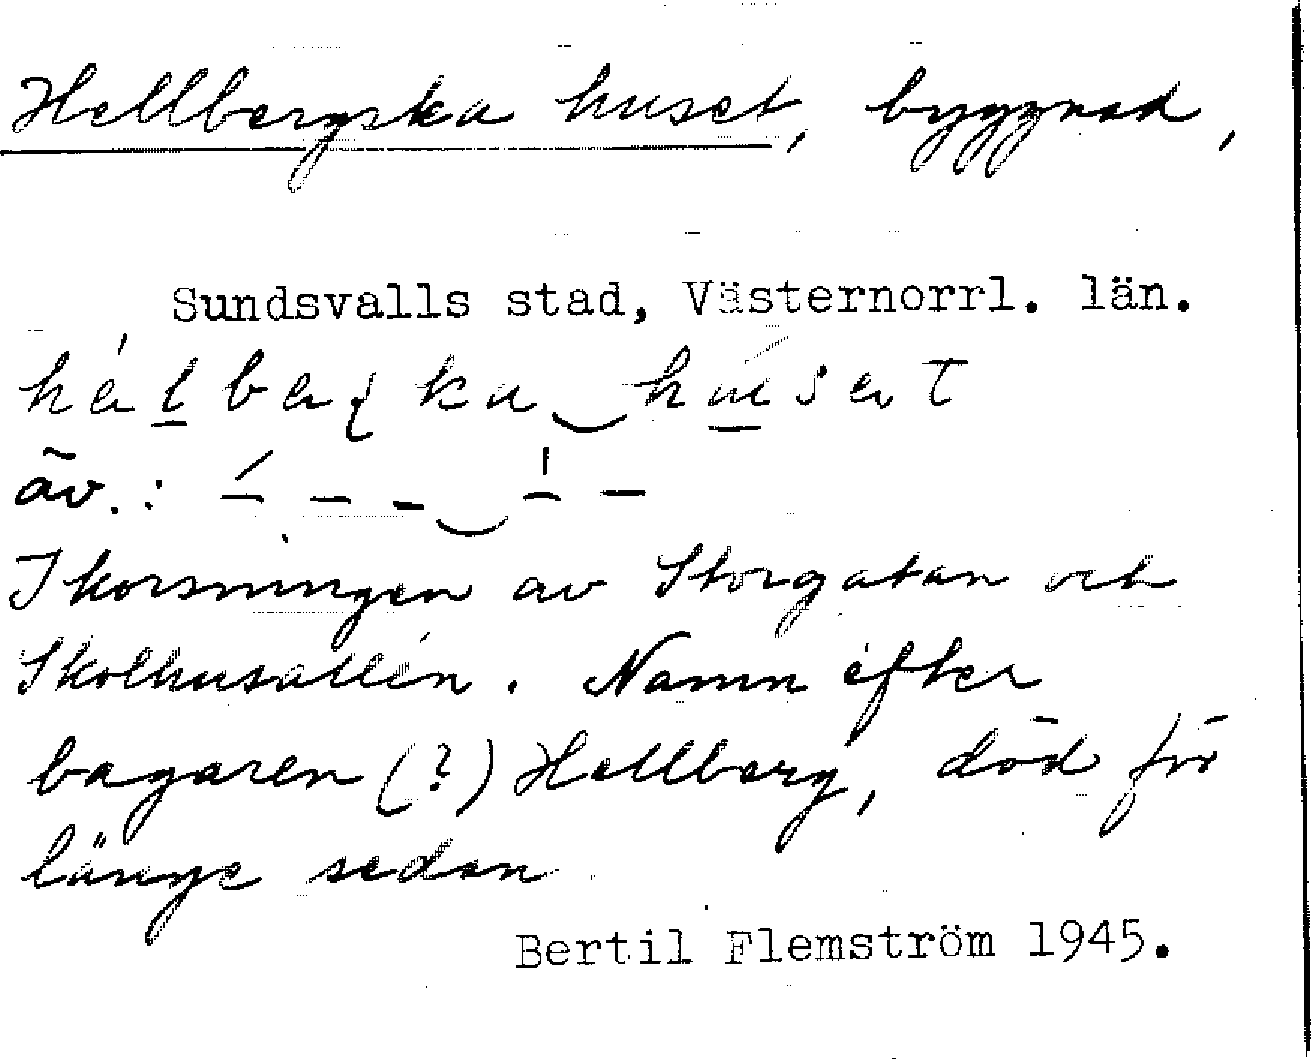 Hellbergska huset, byggnad,
Sundsvalls stad, Västernorrl. län.
äv.:
I korsningen av Storgatan och
Skolhusallén. Namn efter
bagaren (?) Hellberg, död för
länge sedan
Bertil Flemström 1945.